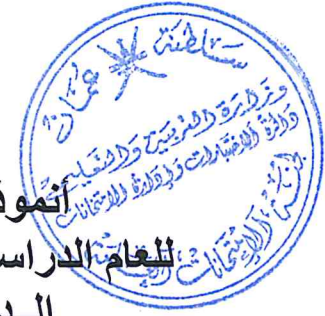 سلطنة عمان
وزارة التربية والتعليم
دائرة الاختبارات وإدارة الامتحانات
أنموذ
للعام الدراس